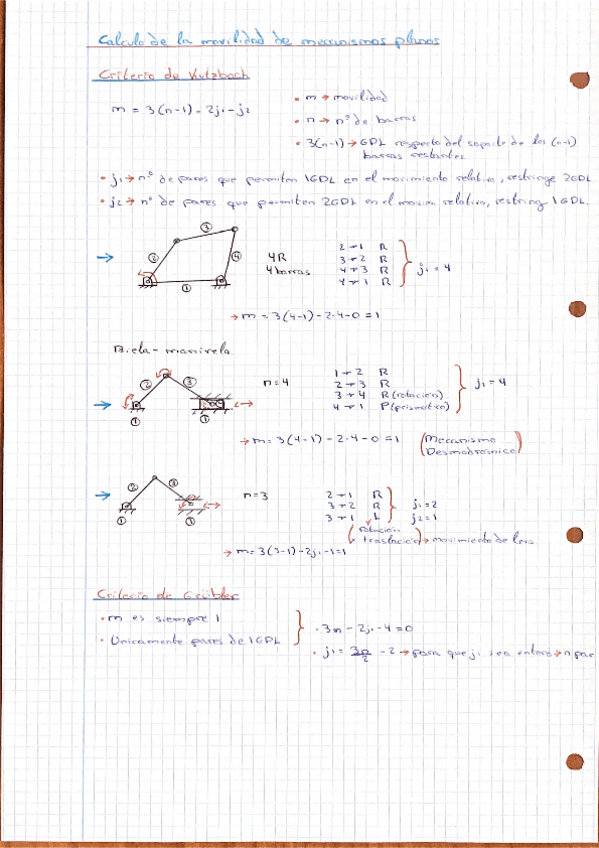 Calculo de la movilidad de mecanismos planos
Criterio de Kutzbach
m = 3(n-1) - 2j₁ - j₂
• m → movilidad
• n → nº de barras
• 3(n-1) → GDL respecto del soporte de los (n-1)
barras restantes
• j₁ → nº de pares que permiten 1GDL en el movimiento relativo, restringe 2GDL
• j₂ → nº de pares que permiten 2GDL en el movim relativo, restring 1GDL.
② ③ ④ ①
4R
4 barras
2→1 R
3→2 R
4→3 R
4→1 R
j₁ = 4
→ m = 3(4-1) - 2·4 - 0 = 1
Biela-manivela
② ③ ① ①
n=4
1→2 R
2→3 R
3→4 R (rotación)
4→1 P (prismático)
j₁ = 4
→ m = 3(4-1) - 2·4 - 0 = 1 (Mecanismo
Desmodrómico)
② ③ ① ①
n=3
2→1 R
3→2 R
3→1 L
j₁=2
j₂=1
(rotación
traslación) → movimiento de leva
→ m = 3(3-1) - 2j₁ - 1 = 1
Criterio de Grübler
• m es siempre 1
• Unicamente pares de 1GDL
· 3n - 2j₁ - 4 = 0
· j₁ = 3n/2 - 2 → para que j₁ sea entero → n par